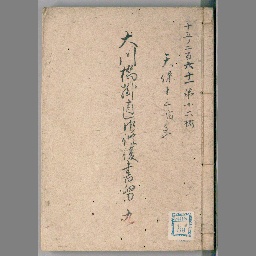 十五ノ二百六十一 第十六掛
天保十二丑年
大川橋掛直御修復書留 九